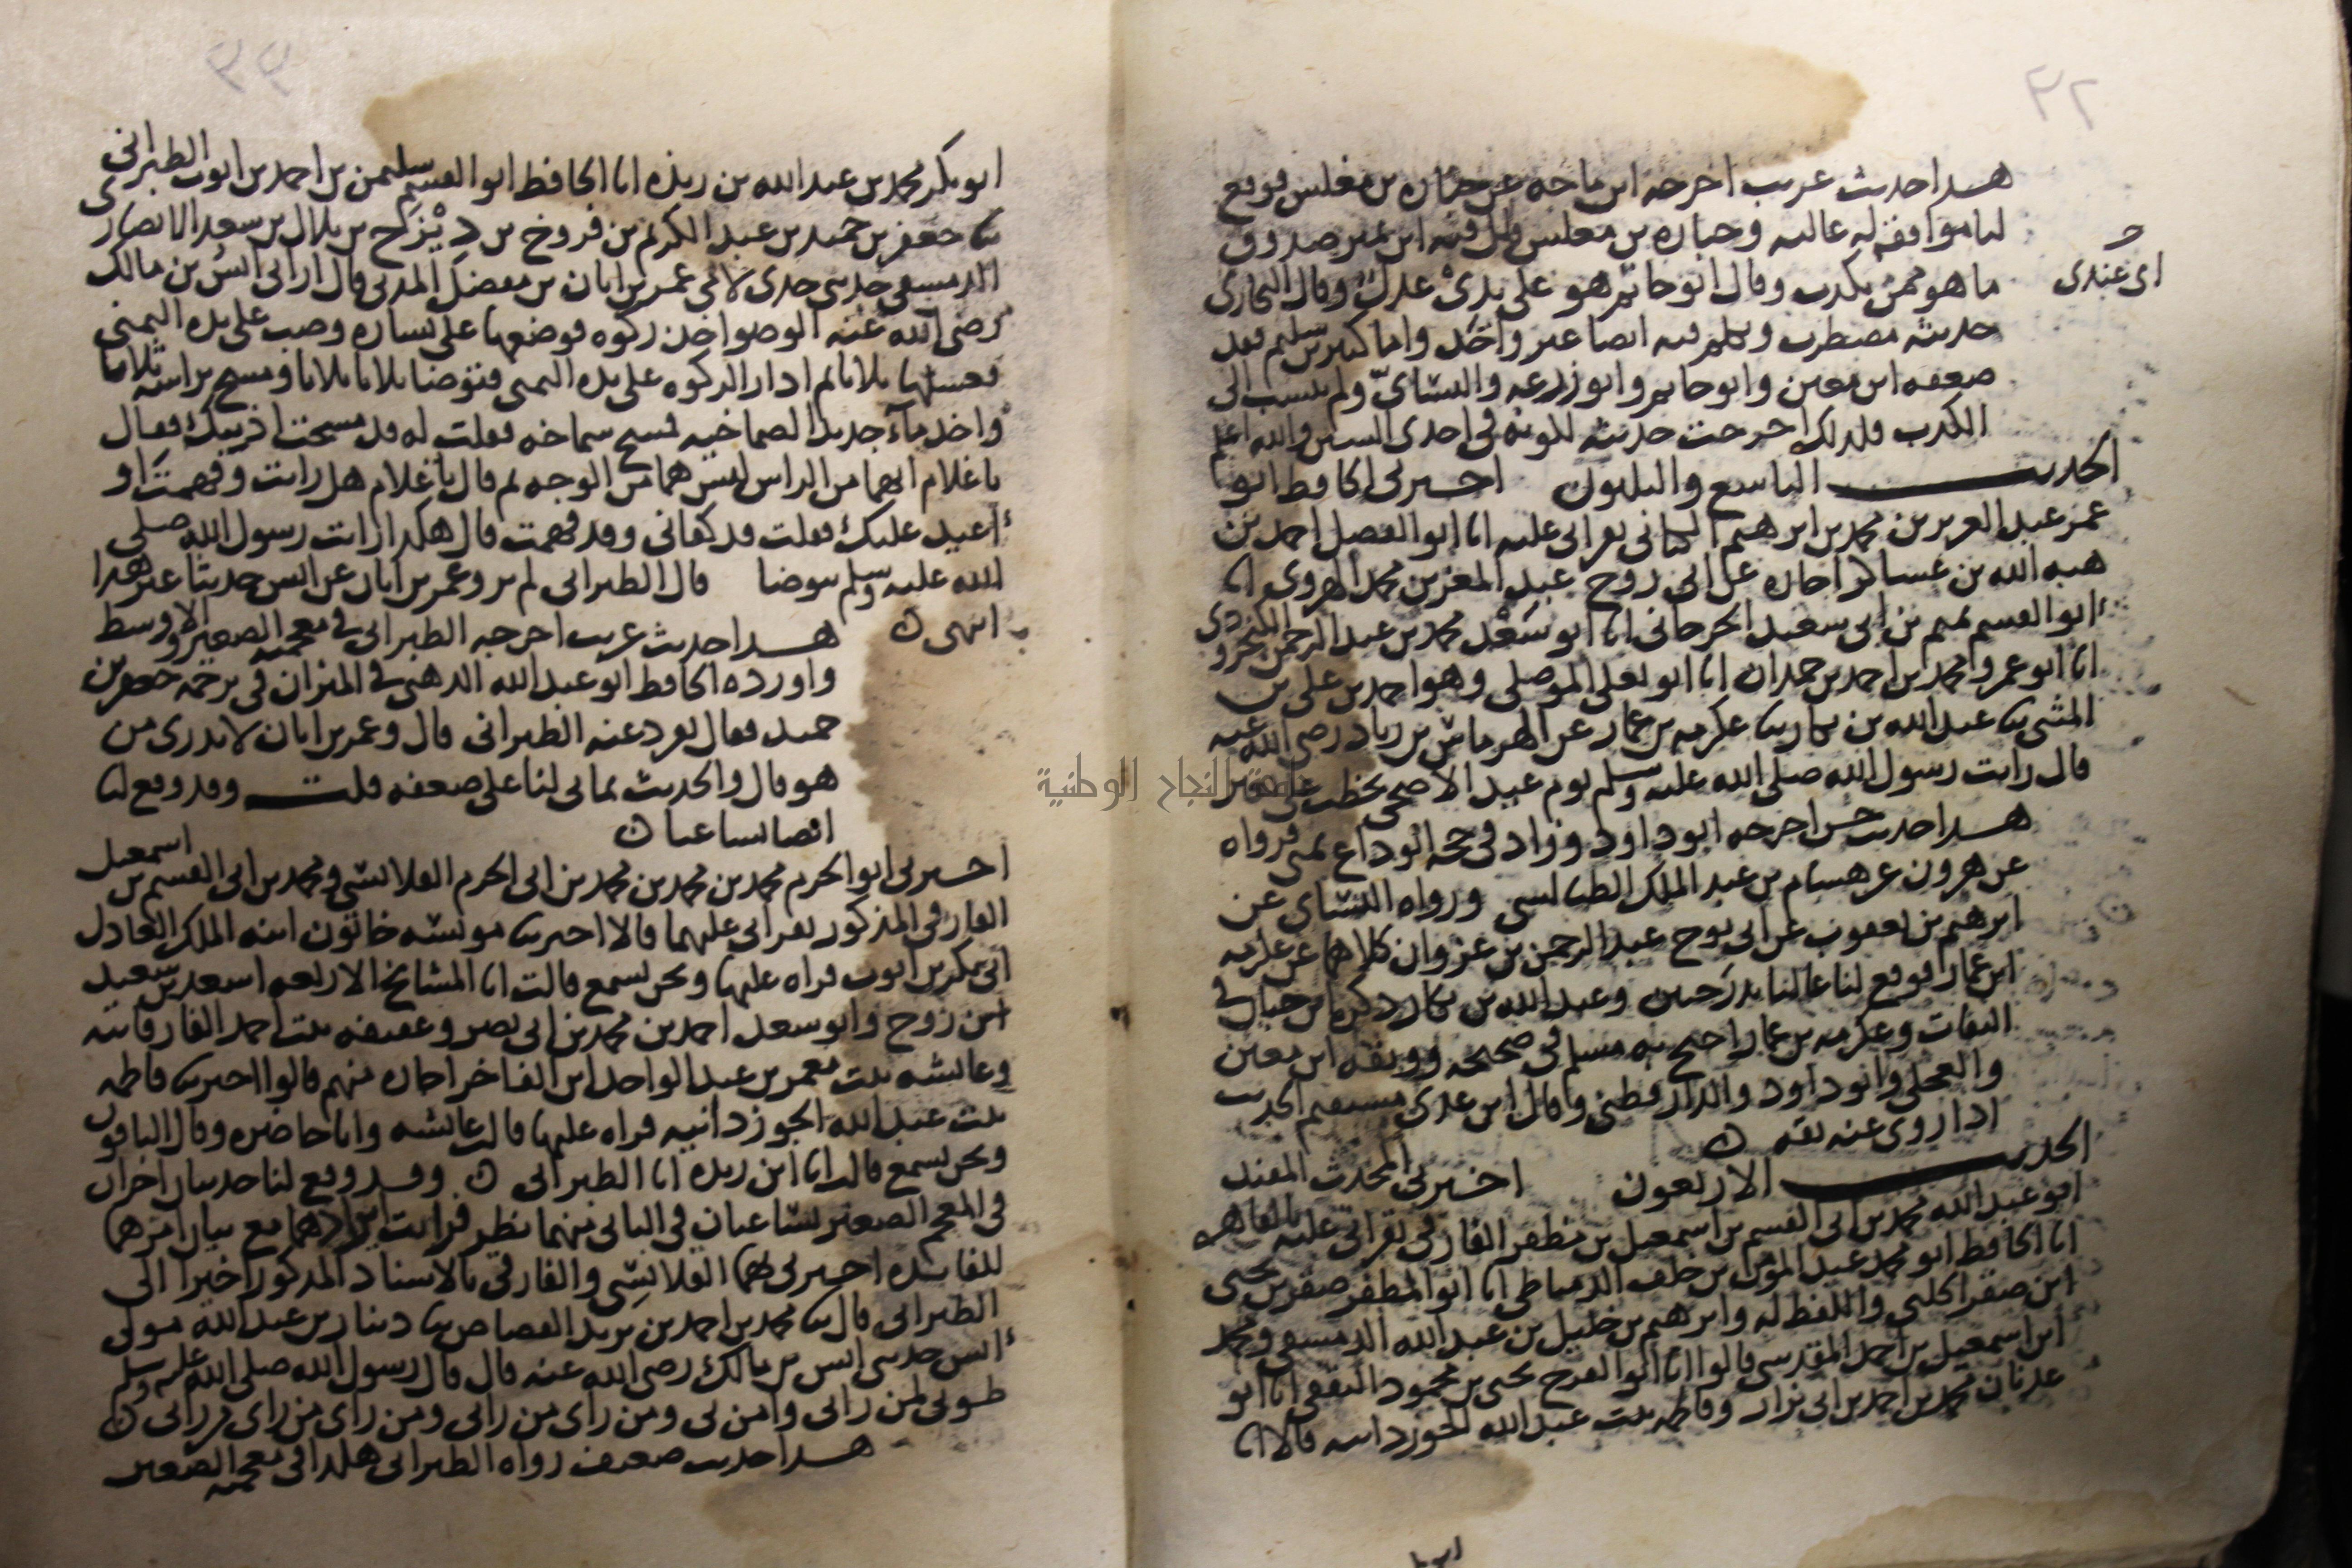 ٣٢
هذا حديث غريب اخرجه ابن ماجه عن جباره بن مغلس فوقع
لنا موافقه له عاليه وجباره بن مغلس قال فيه ابن نمير صدوق
ما هو ممن يكذب وقال ابو حاتم هو على يدي عدل وقال البخاري
اي عندي
حديثه مضطرب وتكلم فيه ايضا غير واحد واما كثير بن سليم فقد
ضعفه ابن معين وابو حاتم وابو زرعه والنسائي ولم ينسب الى
الكذب فلذلك اخرجت حديثه للونه في احدى السنن والله اعلم
الحديث التاسع والثلثون اخبرني الحافظ ابو
عمر عبد العزيز بن محمد بن ابرهيم الكناني بقراتي عليه انا ابو الفضل احمد بن
هبه الله بن عساكر اجازه عن ابي روح عبد المعز بن محمد الهروي انا
ابو القسم تميم بن ابي سعيد الجرجاني انا ابو سعد محمد بن عبد الرحمن الكنجرودي
انا ابو عمرو محمد بن احمد بن حمدان انا ابو يعلى الموصلي وهو احمد بن علي بن
المثنى ثنا عبد الله بن بكار ثنا عكرمه بن عمار عن الهرماس بن زياد رضي الله عنه
قال رايت رسول الله صلى الله عليه وسلم يوم عيد الاضحى يخطب على بعير
هذا حديث حسن اخرجه ابو داود وزاد في حجه الوداع بمنى فرواه
عن هرون عن هشام بن عبد الملك الطيالسي ورواه النسائي عن
ابرهيم بن يعقوب عن ابي نوح عبد الرحمن بن غزوان كلاهما عن عكرمه
ابن عمار فوقع لنا عاليا بدرجتين وعبد الله بن بكار ذكره ابن حبان في
الثقات وعكرمه بن عمار احتج به مسلم في صحيحه ووثقه ابن معين
والعجلي وابو داود والدارقطني وقال ابن عدي مستقيم الحديث
اذا روى عنه ثقه
الحديث الاربعون اخبرني المحدث المفيد
ابو عبد الله محمد بن ابي القسم بن اسمعيل بن مظفر الفارقي بقراتي عليه بالقاهره
انا الحافظ ابو محمد عبد المؤمن بن خلف الدمياطي انا ابو المظفر صقر بن يحيى
ابن صقر الحلبي واللفظ له وابرهيم بن خليل بن عبد الله الدمشقي ومحمد
ابن اسمعيل بن احمد المقدسي قالوا انا ابو الفرج يحيى بن محمود الثقفي انا ابو
عدنان محمد بن احمد بن ابي نزار وفاطمه بنت عبد الله الجوزدانيه قالا انا
٣٣
ابو بكر محمد بن عبد الله بن ريذه انا الحافظ ابو القسم سليمن بن احمد بن ايوب الطبراني
ثنا جعفر بن حميد بن عبد الكريم بن فروخ بن ديزج بن بلال بن سعد الانصاري
الدمشقي حدثني جدي لامي عمر بن ابان بن مفضل المدني قال اراني انس بن مالك
رضي الله عنه الوضو اخذ ركوه فوضعها على يساره وصب على يده اليمنى
فغسلها ثلاثا ثم ادار الركوه على يده اليمنى فتوضا ثلاثا ثلاثا ومسح براسه ثلاثا
واخذ ماء جديدا لصماخيه فمسح سماخه فقلت له قد مسحت اذنيك فقال
يا غلام انهما من الراس ليس هما من الوجه ثم قال يا غلام هل رايت وفهمت او
اعيد عليك فقلت قد كفاني وقد فهمت قال هكذا رايت رسول الله صلى
الله عليه وسلم يتوضا قال الطبراني لم يرو عمر بن ابان عن انس حديثا غير هذا
انتهى هذا حديث غريب اخرجه الطبراني في معجميه الصغير والاوسط
واورده الحافظ ابو عبد الله الذهبي في الميزان في ترجمه جعفر بن
حميد فقال تفرد عنه الطبراني قال وعمر بن ابان لا يدرى من
هو قال والحديث ثماني لنا على ضعفه قلت وقد وقع لنا
ايضا تساعيا
اخبرني ابو الحرم محمد بن محمد بن محمد بن ابي الحرم القلانسي ومحمد بن ابي القسم بن اسمعيل
الفارقي المذكور بقراتي عليهما قالا اخبرتنا مونسه خاتون ابنه الملك العادل
ابي بكر بن ايوب قراه عليها ونحن نسمع قالت انا المشايخ الاربعه اسعد بن سعيد
ابن روح وابو سعد احمد بن محمد بن ابي نصر وعفيفه بنت احمد الفارفانيه
وعائشه بنت معمر بن عبد الواحد ابن الفاخر اجازه منهم قالوا اخبرتنا فاطمه
بنت عبد الله الجوزدانيه قراه عليها قالت عائشه وانا حاضره وقال الباقون
ونحن نسمع قالت انا ابن ريذه انا الطبراني وقد وقع لنا حديثان اخران
في المعجم الصغير تساعيان في الثاني منهما نظر فرايت ايرادهما مع بيان امرهما
للفائده اخبرني بهما القلانسي والفارقي بالاسناد المذكور اخيرا الى
الطبراني قال ثنا محمد بن احمد بن يزيد القصاص ثنا دينار بن عبد الله مولى
انس حدثني انس بن مالك رضي الله عنه قال قال رسول الله صلى الله عليه وسلم
طوبى لمن راني وامن بي ومن راى من راني ومن راى من راى من راني
هذا حديث ضعيف رواه الطبراني هكذا في معجمه الصغير
جامعة النجاح الوطنية